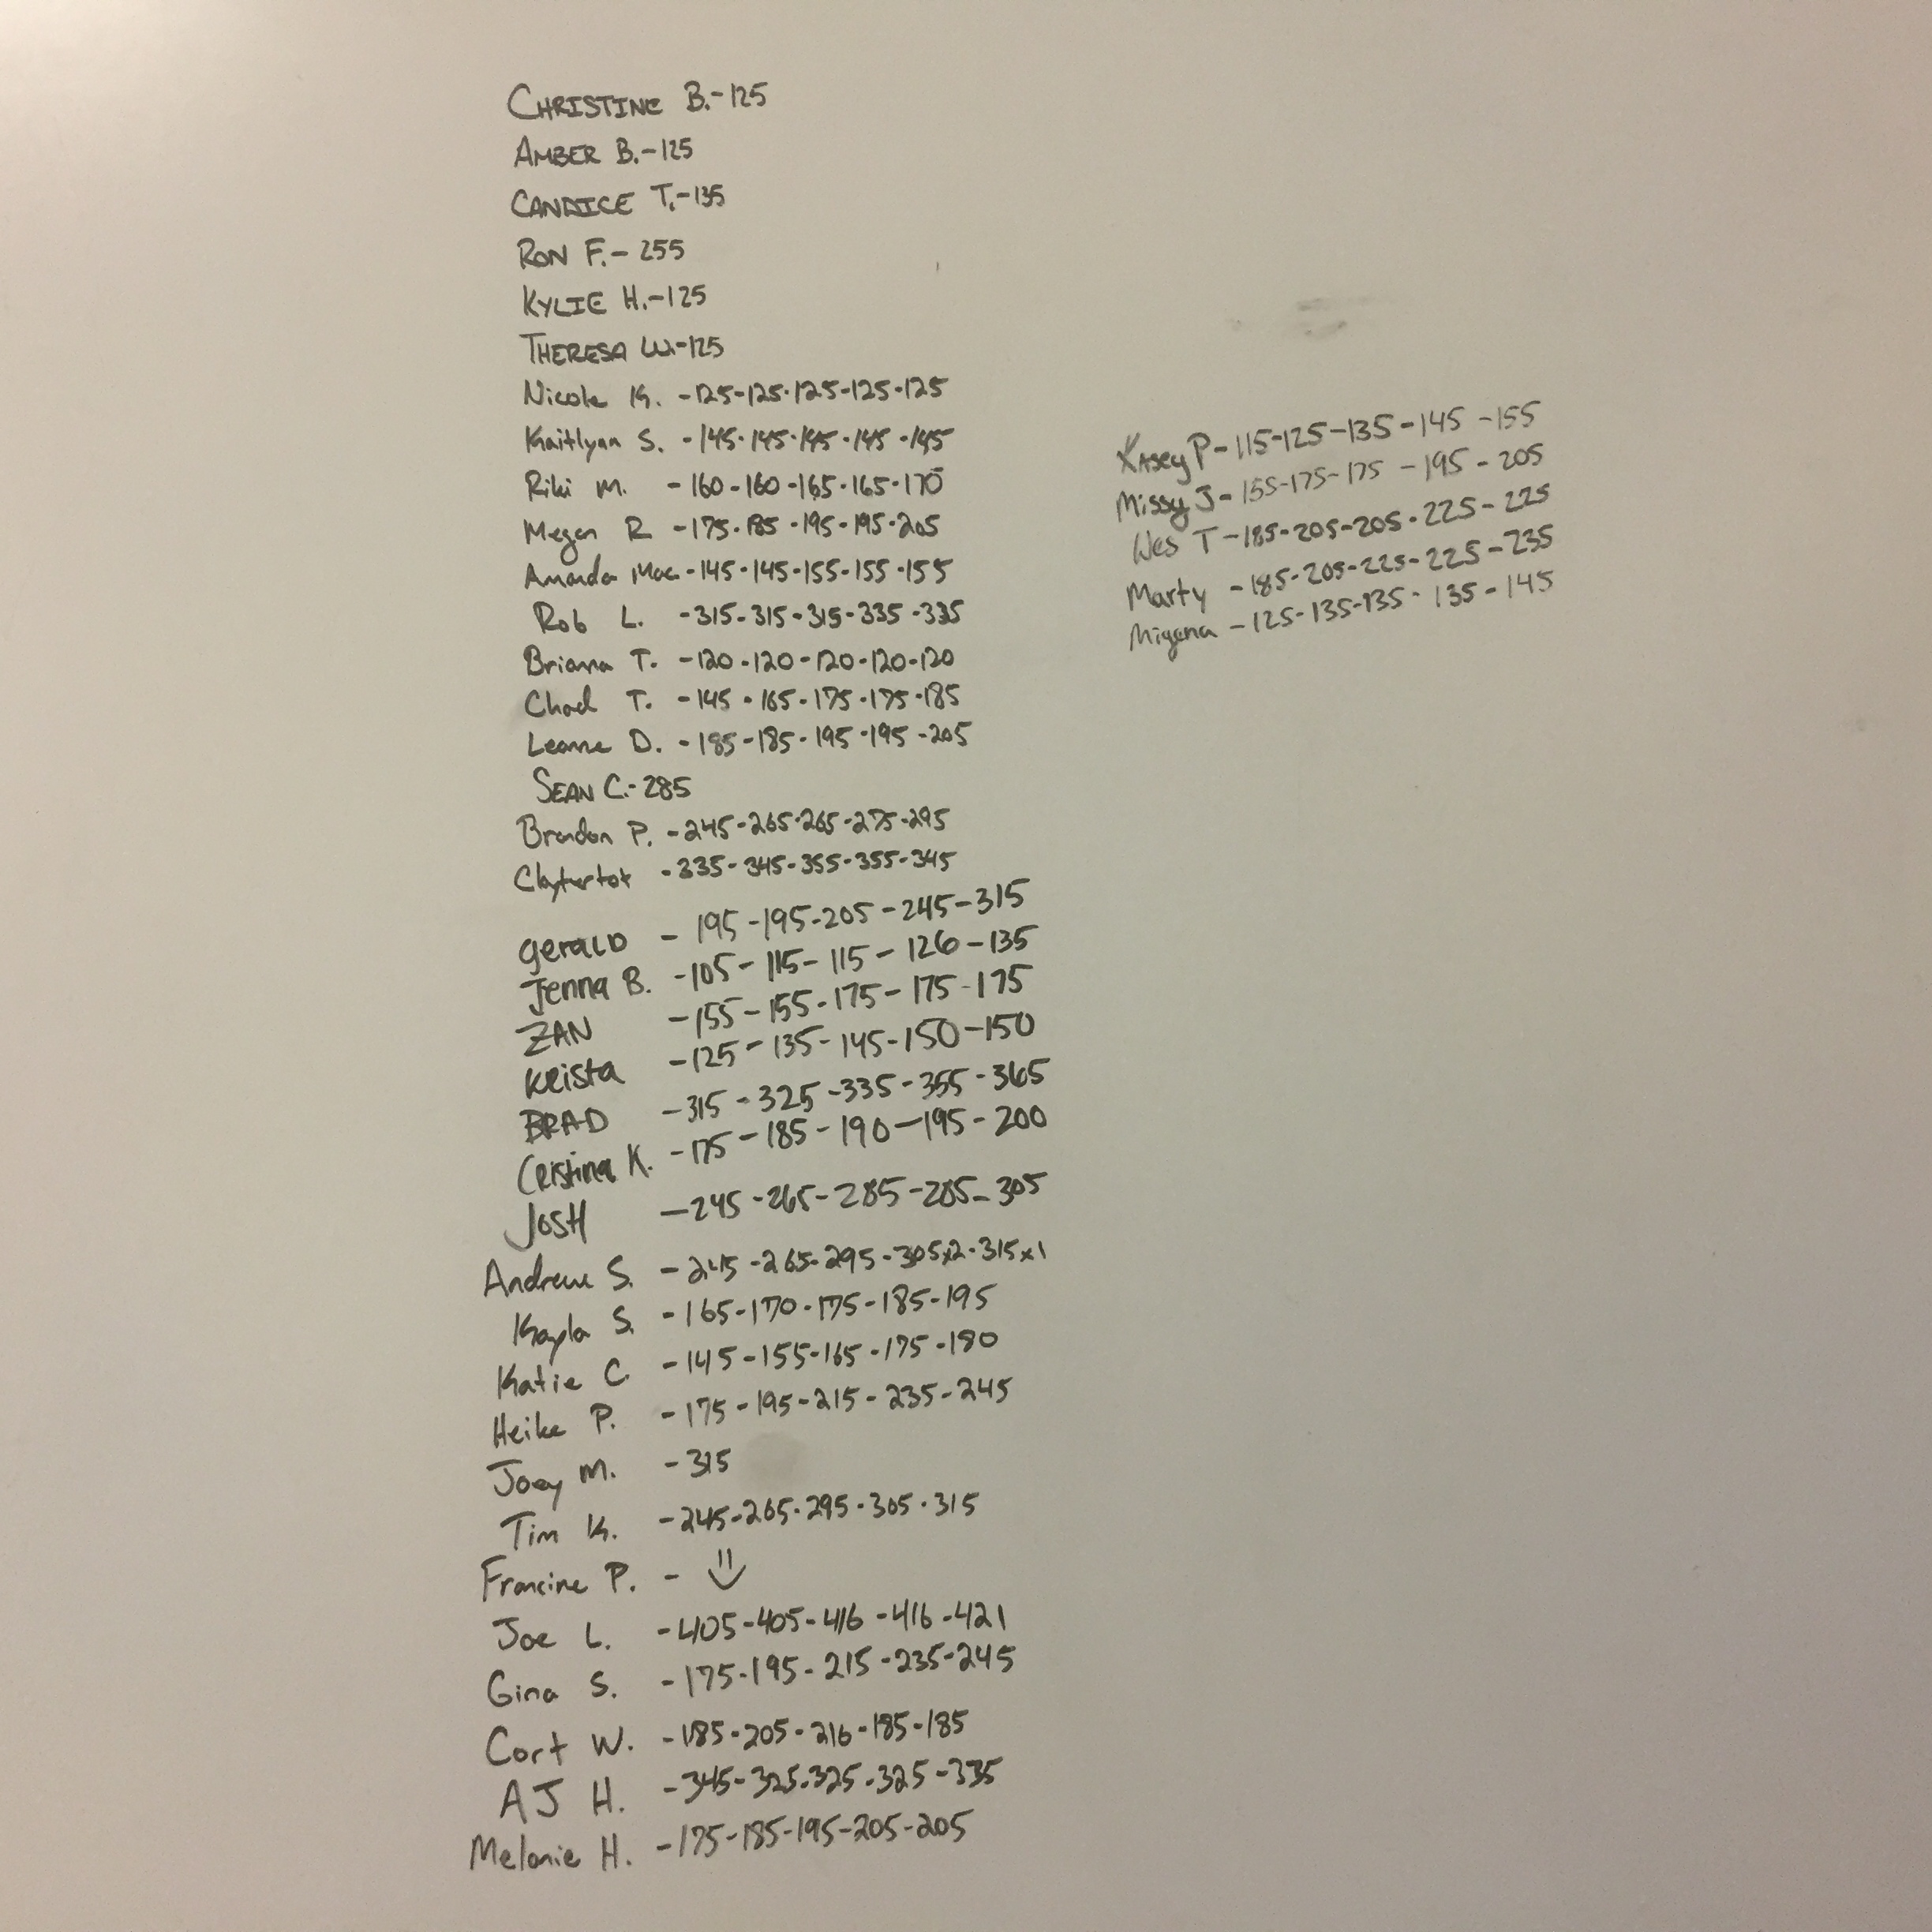 CHRISTINE B.-125
AMBER B.-125
CANDICE T.-135
RON F.- 255
KYLIE H.-125
THERESA W.-125
Nicole K. -125-125-125-125-125
Kaitlynn S. -145-145-145-145-145
Riki M. -160-160-165-165-170
Megan R -175-185-195-195-205
Amanda Mac -145-145-155-155-155
Rob L. -315-315-315-335-335
Briana T. -120-120-120-120-120
Chad T. -145-165-175-175-185
Leanne D. -185-185-195-195-205
SEAN C.-285
Brandon P. -245-265-265-275-295
Claytertot -335-345-355-355-345
gerald - 195-195-205-245-315
Jenna B. -105-115-115-126-135
ZAN -155-155-175-175-175
Krista -125-135-145-150-150
BRAD -315-325-335-355-365
Cristina K. -175-185-190-195-200
JOSH -245-265-285-285-305
Andrew S. -245-265-295-305x2-315x1
Kayla S. -165-170-175-185-195
Katie C. -145-155-165-175-180
Heike P. -175-195-215-235-245
Joey M. -315
Tim K. -245-265-295-305-315
Francine P. -
Joe L. -405-405-416-416-421
Gina S. -175-195-215-235-245
Cort W. -185-205-216-185-185
AJ H. -345-325-325-325-335
Melanie H. -175-185-195-205-205
Kasey P-115-125-135-145-155
Missy J-155-175-175-195-205
Wes T-185-205-205-225-225
Marty -185-205-225-225-235
Migena -125-135-135-135-145